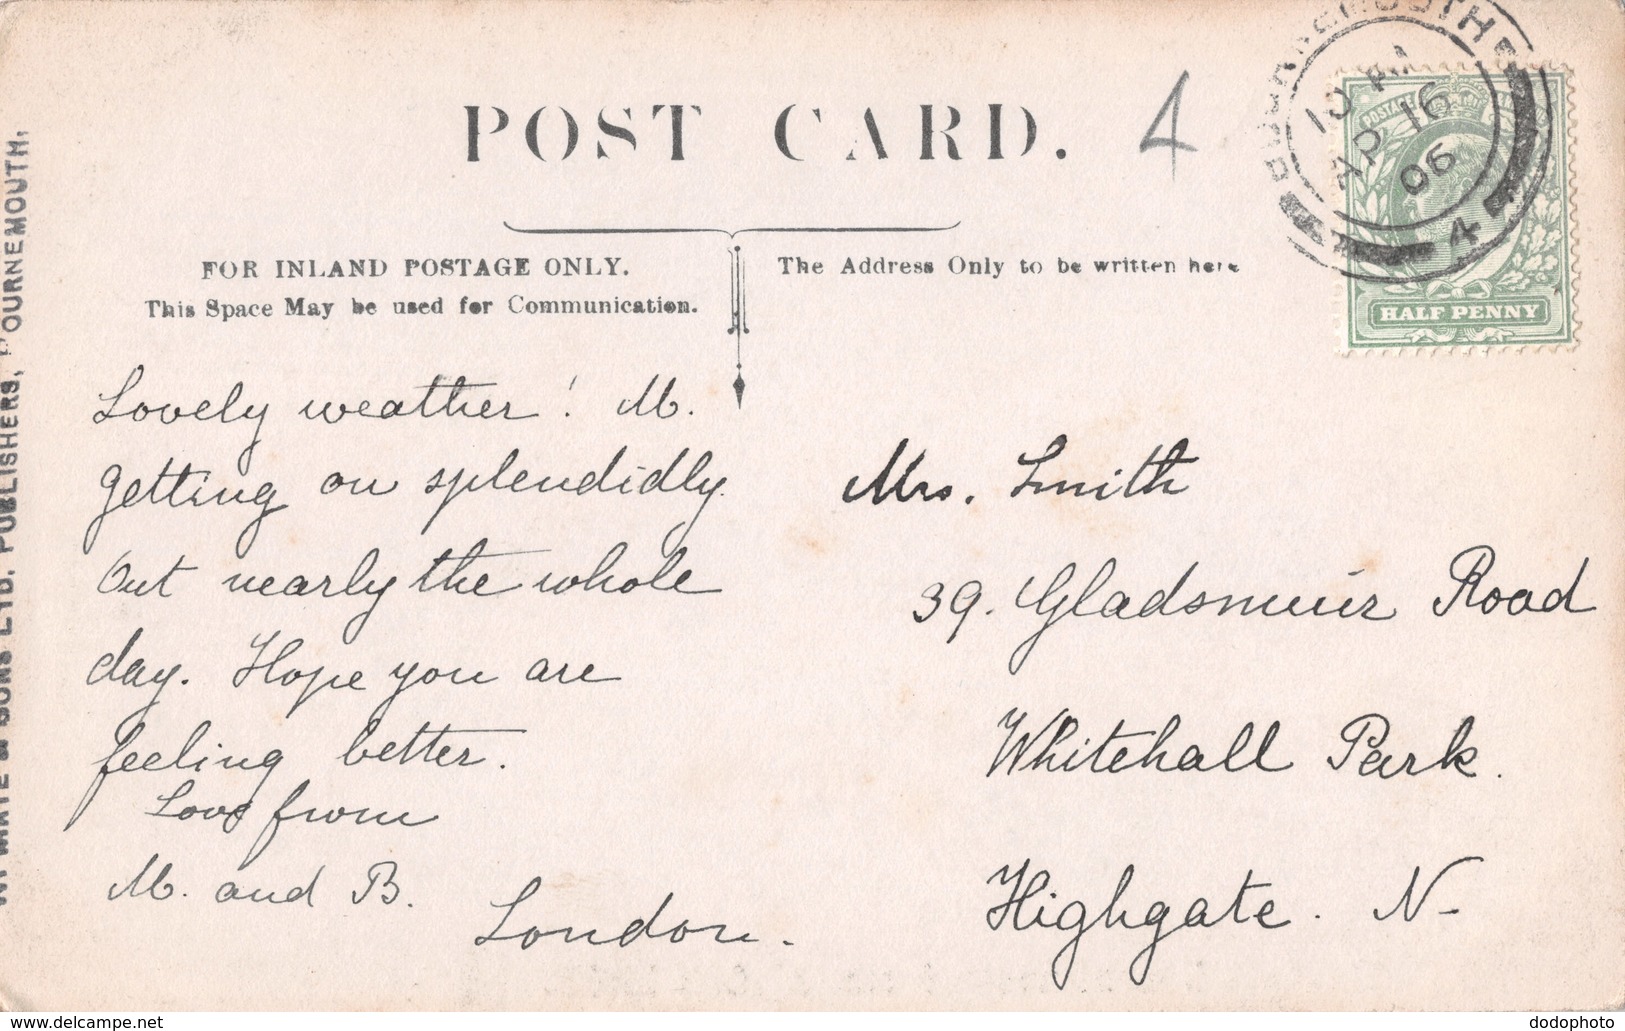 POST CARD.
4
BOURNEMOUTH
AP 16
06
4
POSTAGE
HALF PENNY
FOR INLAND POSTAGE ONLY.
This Space May be used for Communication.
The Address Only to be written here
Lovely weather! M.
getting on splendidly.
Out nearly the whole
day. Hope you are
feeling better.
Love from
M. and B.
London.
Mrs. Smith
39. Gladsmuir Road
Whitehall Park.
Highgate. N-
W. MATE & SONS LTD. PUBLISHERS, BOURNEMOUTH,
www.delcampe.net
dodophoto